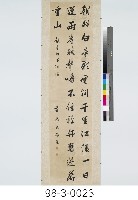 朝辭白帝彩雲間千里江陵一日
還兩岸猿聲啼不住輕舟已過萬
重山
98-3-0023